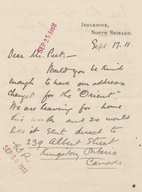 INGLEWOOD,
NORTH SHIELDS.
Sept 17. 11
SEP 25 1911
Dear Mr. Peet:-
Would you be kind
enough to have our address
changed for the "Orient".
We are leaving for home
this week and so would
like it sent direct to
239 Albert Street
Kingston Ontario
Canada
SEP 25 1911